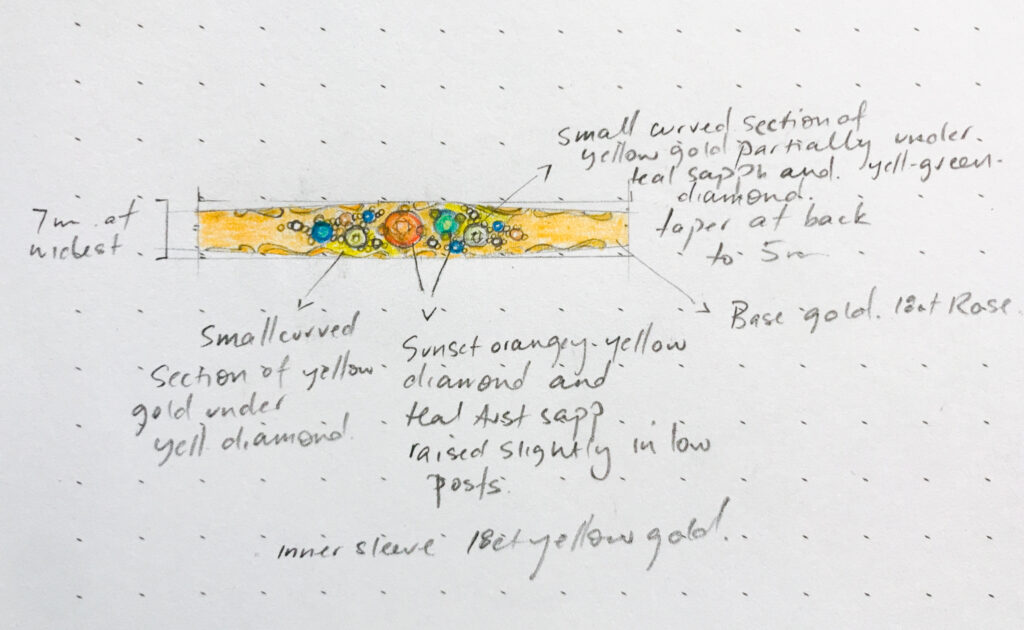 small curved section of
yellow gold partially under
teal sapph and yell-green-
diamond.
taper at back
to 5m
7m at
widest
Base gold. 18ct Rose.
Small curved
section of yellow
gold under
yell diamond.
Sunset orangey-yellow
diamond and
teal Aust sapp
raised slightly in low
posts.
inner sleeve 18ct yellow gold.